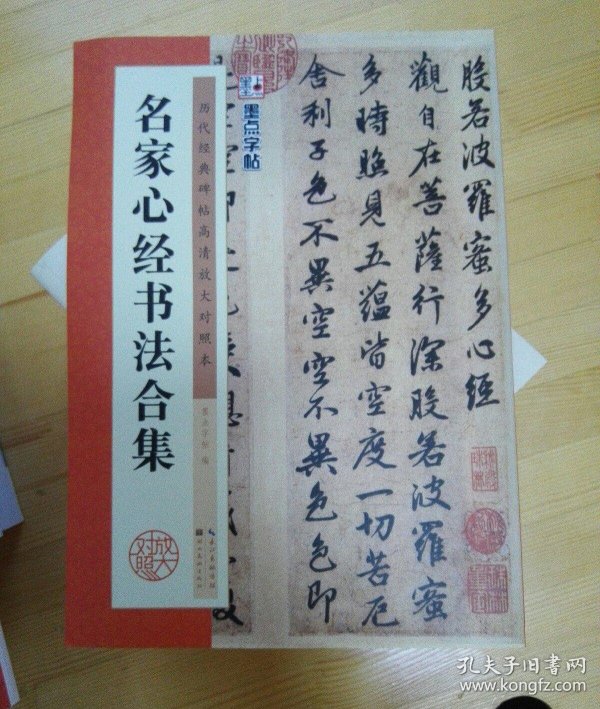 名家心经书法合集
历代经典碑帖高清放大对照本
墨点字帖 编
放大
对照
长江出版传媒
湖北美术出版社
墨点字帖
般若波羅蜜多心經
觀自在菩薩行深般若波羅蜜
多時照見五蘊皆空度一切苦厄
舍利子色不異空空不異色色即
孔夫子旧书网
www.kongfz.com